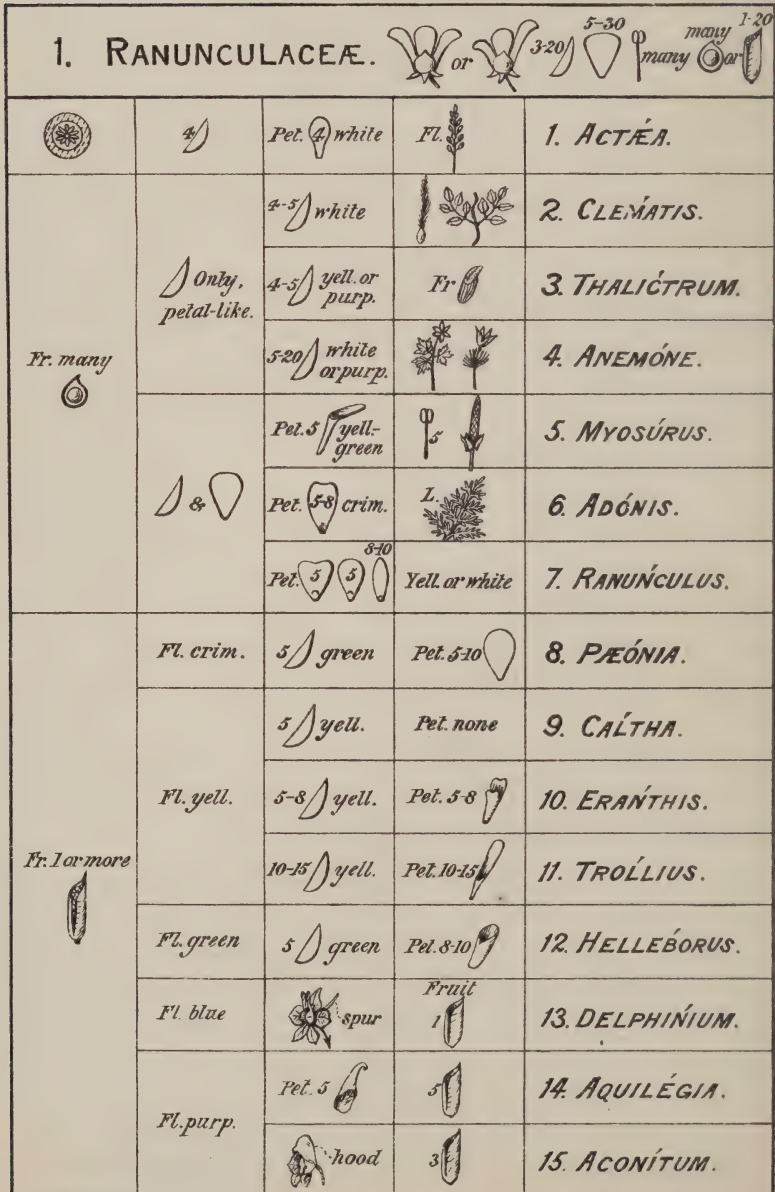 1. RANUNCULACEÆ. or 3-20 5-30 many many or 1-20
4 Pet. 4 white Fl. 1. ACTǼA.
Fr. many
Only, petal-like.
4-5 white 2. CLEMÁTIS.
4-5 yell. or purp. Fr 3. THALÍCTRUM.
5-20 white or purp. 4. ANEMÓNE.
&
Pet. 5 yell.-green 5 5. MYOSÚRUS.
Pet. 5-8 crim. L. 6. ADÓNIS.
Pet. 5 5 8-10 Yell. or white 7. RANÚNCULUS.
Fr. 1 or more
Fl. crim. 5 green Pet. 5-10 8. PÆÓNIA.
Fl. yell.
5 yell. Pet. none 9. CÁLTHA.
5-8 yell. Pet. 5-8 10. ERÁNTHIS.
10-15 yell. Pet. 10-15 11. TRÓLLIUS.
Fl. green 5 green Pet. 8-10 12. HELLÉBORUS.
Fl. blue spur Fruit 1 13. DELPHÍNIUM.
Fl. purp.
Pet. 5 5 14. AQUILÉGIA.
hood 3 15. ACONÍTUM.